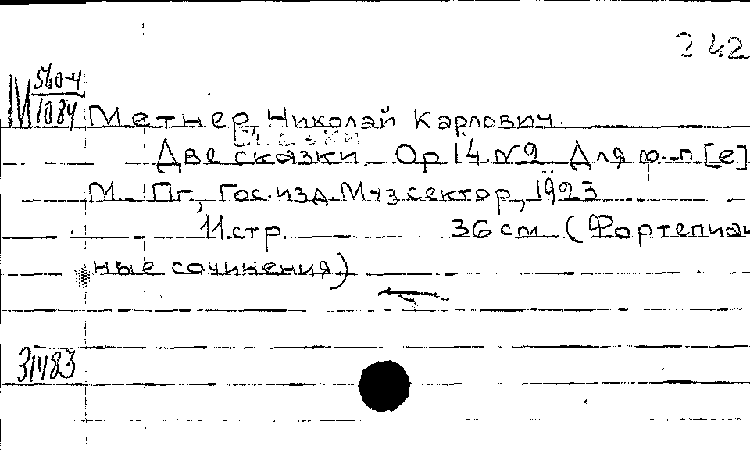 2 42
М 560-4/1084
Метнер, Николай Карлович
Две сказки Op 14 №2 Для ф-п. [е]
М.-Пг., Гос.изд.Муз.сектор, 1923
11.стр. 36 см (Фортепиан
ные сочинения)